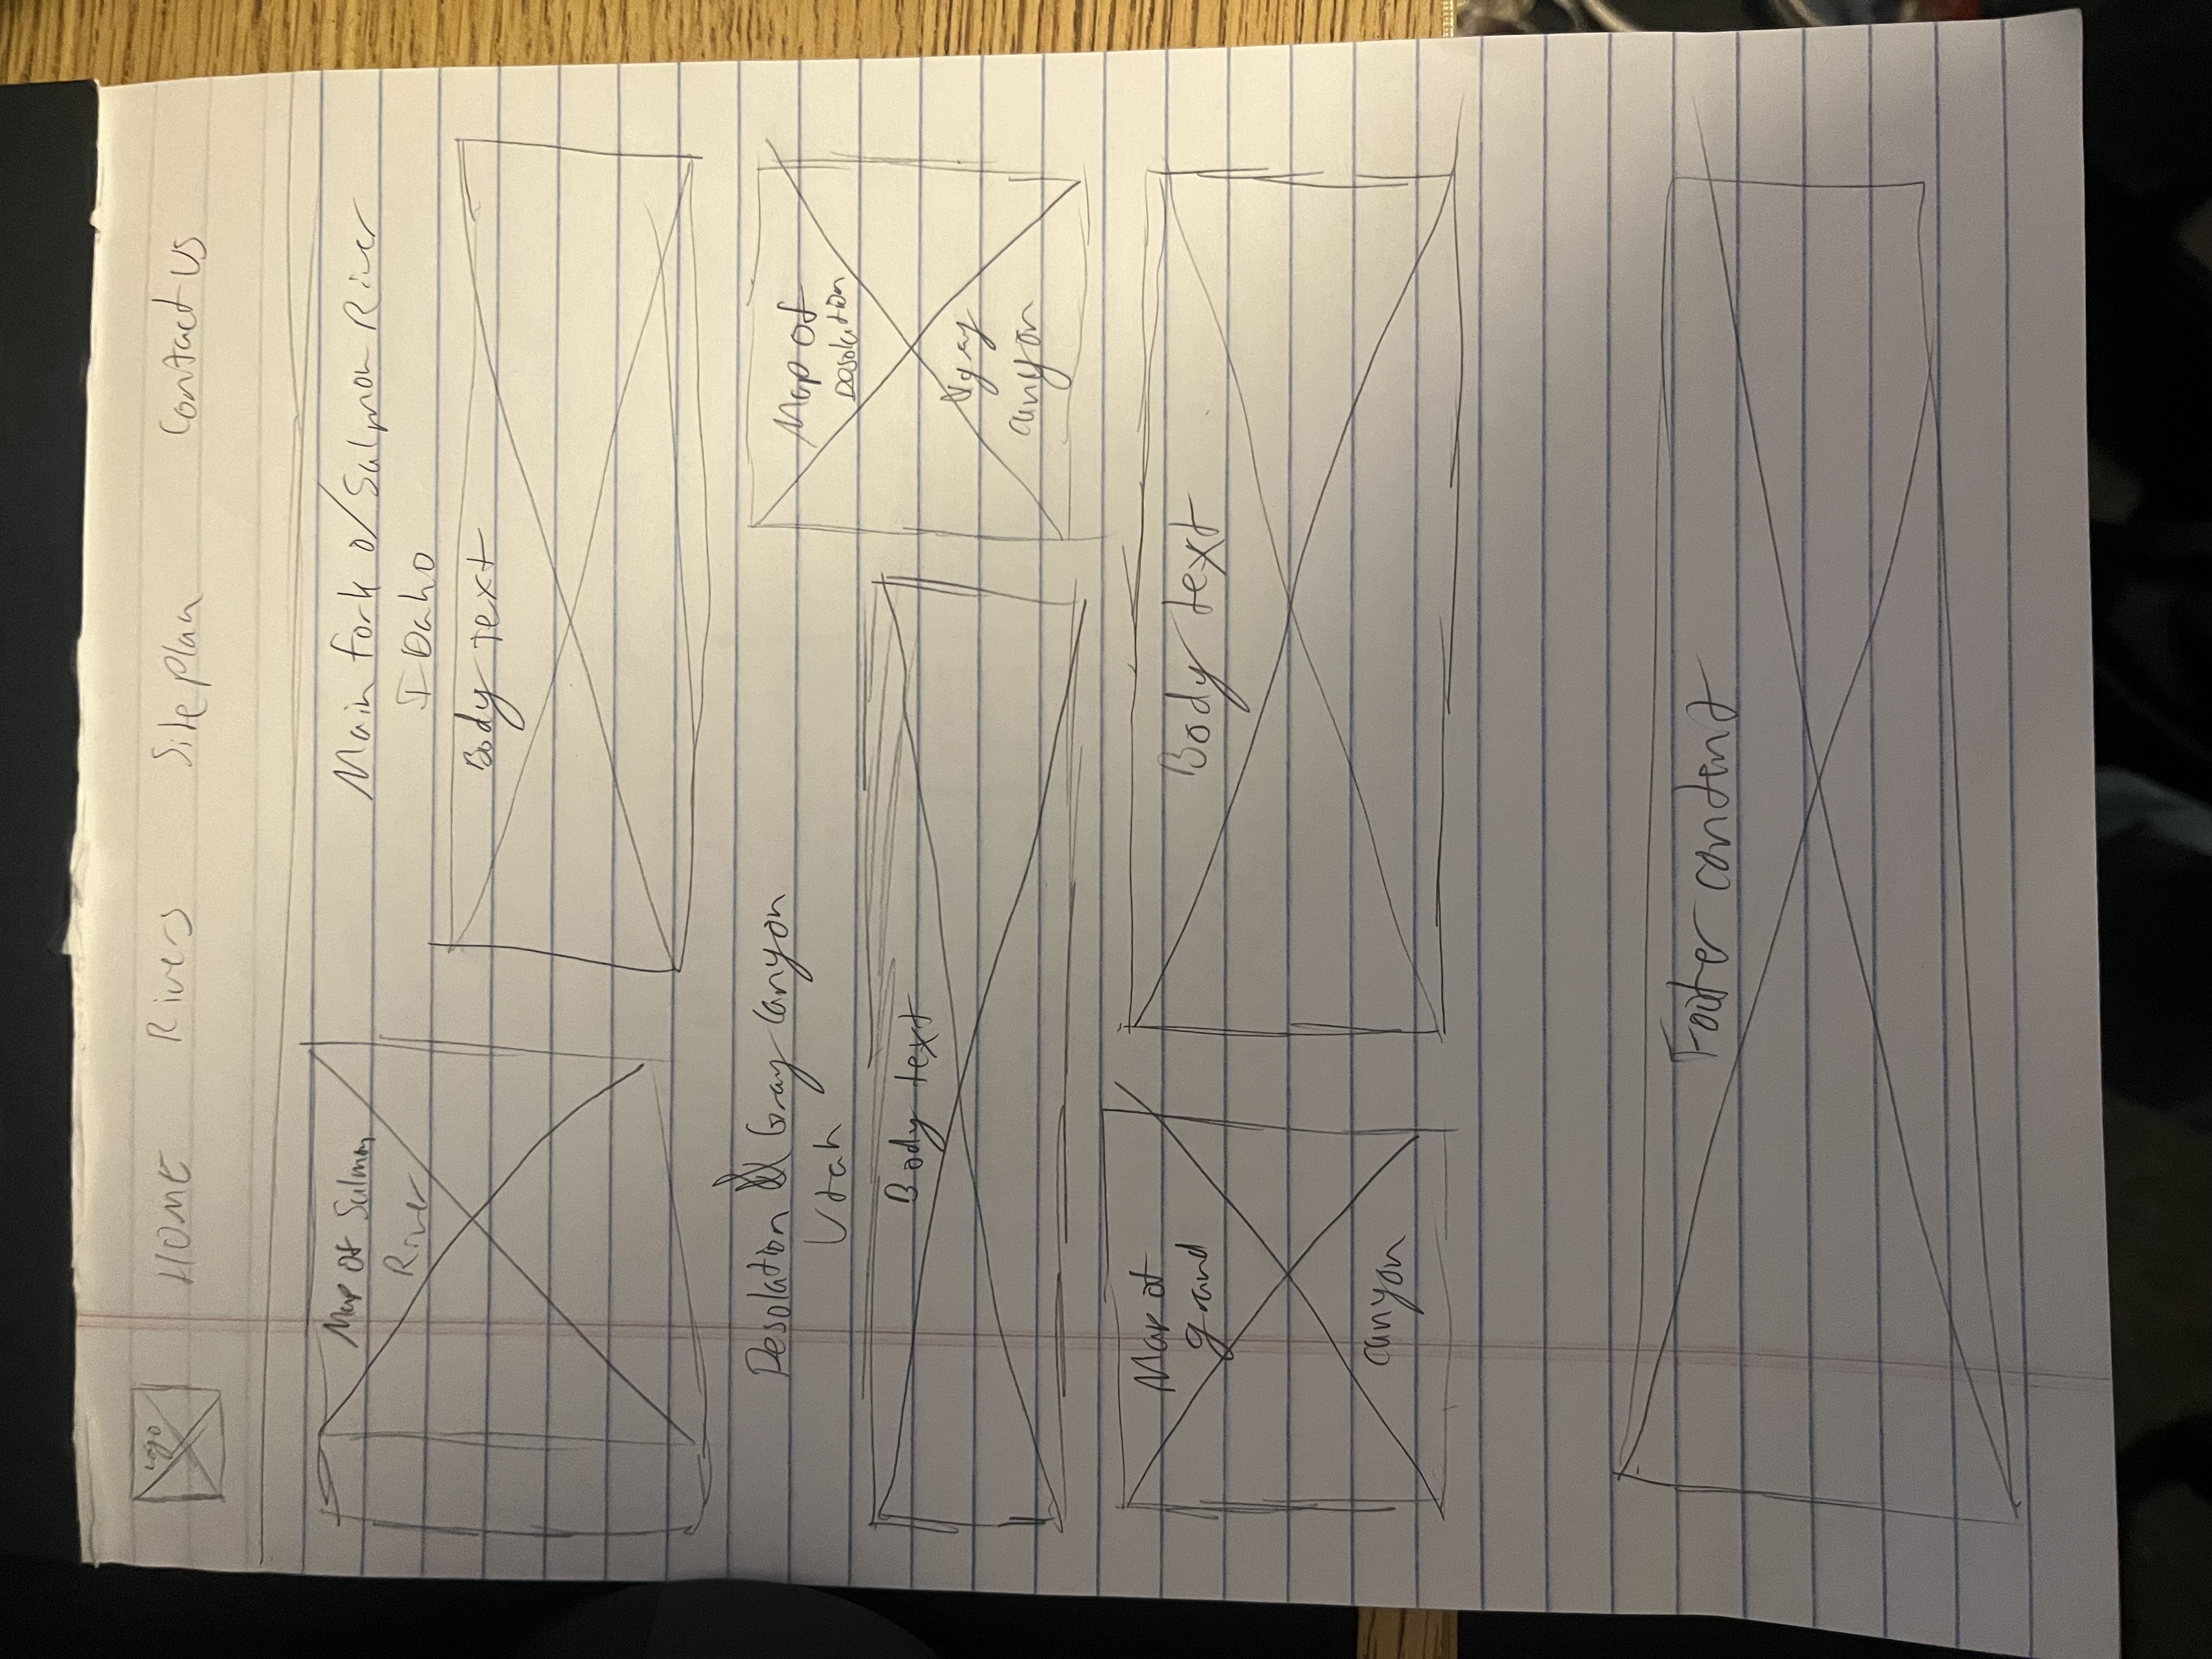 Logo HOME Rivers Site plan Contact Us
Map of Salmon
River
Main fork o/Salmon River
IDaho
Body text
Desolation & Gray Canyon
Utah
Body text
Map of
Desolation
& gray
canyon
Map of
grand
canyon
Body text
Footer content